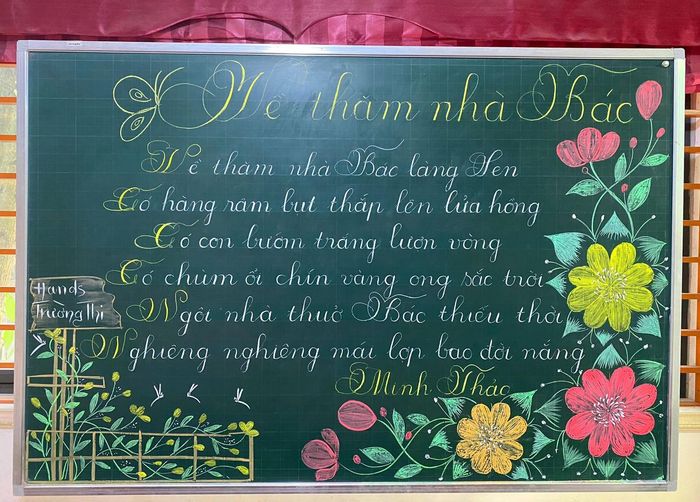 Về thăm nhà Bác
Về thăm nhà Bác làng Sen
Có hàng râm bụt thắp lên lửa hồng
Có con bướm trắng lượn vòng
Có chùm ổi chín vàng ong sắc trời
Ngôi nhà thuở Bác thiếu thời
Nghiêng nghiêng mái lợp bao đời nắng
Minh Thảo
Hands
Trường Thi